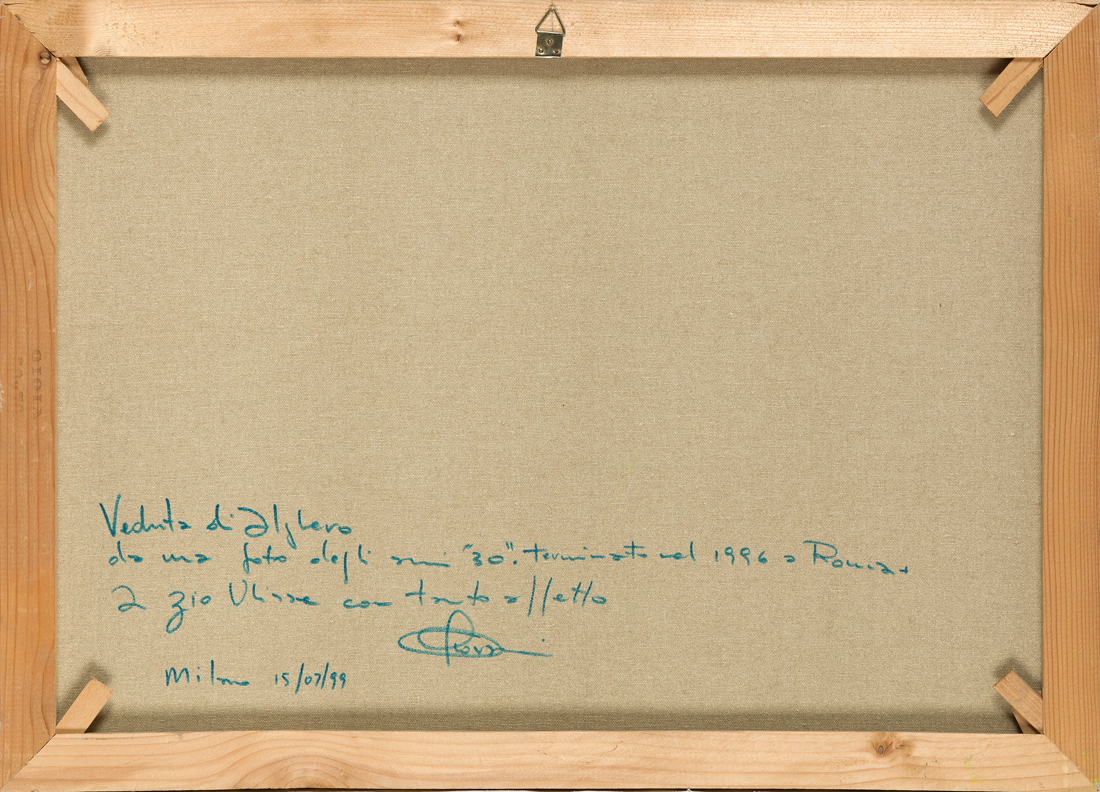 Veduta di Alghero
da una foto degli anni "30". terminato nel 1996 a Roma.
A zio Ulisse con tanto affetto
Milano 15/07/99